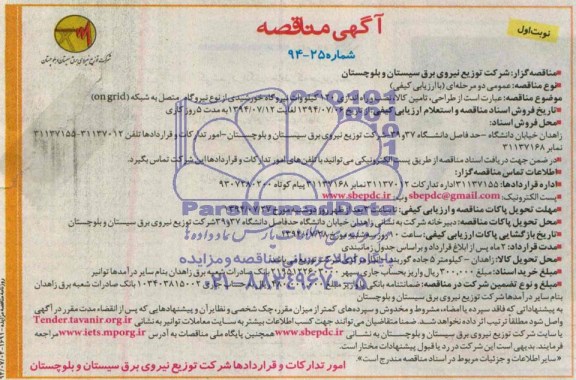 نوبت اول
آگهی مناقصه
شماره ۲۵-۹۴
شرکت توزیع نیروی برق سیستان و بلوچستان
مناقصه‌گزار: شرکت توزیع نیروی برق سیستان و بلوچستان
نوع مناقصه: عمومی دو مرحله‌ای (با ارزیابی کیفی)
موضوع مناقصه: عبارت است از طراحی، تامین کالا، نصب و راه اندازی کیلووات نیروگاه خورشیدی از نوع نیروگاه متصل به شبکه (on grid)
تاریخ فروش اسناد مناقصه و استعلام ارزیابی کیفی: از ۱۳۹۴/۰۷/ لغایت ۱۳۹۴/۰۷/۱۲ به مدت ۵ روز کاری
محل فروش اسناد:
زاهدان خیابان دانشگاه -حد فاصل دانشگاه ۳۷ و ۳۹-شرکت توزیع نیروی برق سیستان و بلوچستان -امور تدارکات و قراردادها تلفن ۳۱۱۳۷۰۱۲-۳۱۱۳۷۱۵۵
نمابر ۳۱۱۳۷۱۶۸
در ضمن جهت دریافت اسناد مناقصه از طریق پست الکترونیکی می توانید با تلفن های امور تدارکات و قراردادها این شرکت تماس بگیرد.
اطلاعات تماس مناقصه گزار:
اداره قراردادها: ۳۱۱۳۷۱۵۵ اداره تدارکات ۳۱۱۳۷۰۱۲ نمابر ۳۱۱۳۷۱۶۸ پیام کوتاه
پست الکترونیک: sbepdc@gmail.com وب www.sbepdc.ir
مهلت تحویل پاکات مناقصه و ارزیابی کیفی:
محل تحویل پاکات مناقصه: دبیرخانه شرکت به نشانی زاهدان خیابان دانشگاه حدفاصل دانشگاه ۳۷ و ۳۹ شرکت توزیع نیروی برق سیستان و بلوچستان
تاریخ بازگشایی پاکات ارزیابی کیفی: ساعت ۱۰
مدت قرارداد: ۲ ماه پس از ابلاغ قرارداد و براساس جدول زمانبندی
محل تحویل کالا: زاهدان - کیلومتر ۵ جاده
مبلغ خرید اسناد: ۳۰۰,۰۰۰ ریال واریز بحساب جاری سپهر بانک صادرات شعبه برق زاهدان بنام سایر درآمدها توانیر
مبلغ و نوع تضمین شرکت در مناقصه: ضمانتنامه بانکی بانک صادرات شعبه برق زاهدان
بنام سایر درآمدها شرکت توزیع نیروی برق سیستان و بلوچستان
به پیشنهاداتی که فاقد سپرده یا امضاء، مشروط و مخدوش و سپرده های کمتر از میزان مقرر، چک شخصی و نظایر آن و پیشنهادهایی که پس از انقضاء مدت مقرر در آگهی
واصل شود مطلقا ترتیب اثر داده نخواهد شد. ضمنا متقاضیان می توانند جهت کسب اطلاعات بیشتر به سایت معاملات توانیر به نشانی Tender.tavanir.org.ir
یا سایت شرکت توزیع نیروی برق سیستان و بلوچستان به نشانی www.sbepdc.ir همچنین پایگاه ملی مناقصات به آدرس www.iets.mporg.ir مراجعه
فرمایند. بدیهی است این شرکت در رد یا قبول پیشنهادات مختار است.
« سایر اطلاعات و جزئیات مربوط در اسناد مناقصه مندرج است».
امور تدارکات و قراردادها شرکت توزیع نیروی برق سیستان و بلوچستان
ParsNamadData
پایگاه اطلاع رسانی مناقصه و مزایده
۰۲۱-۸۸۳۴۹۶۷۰-۵